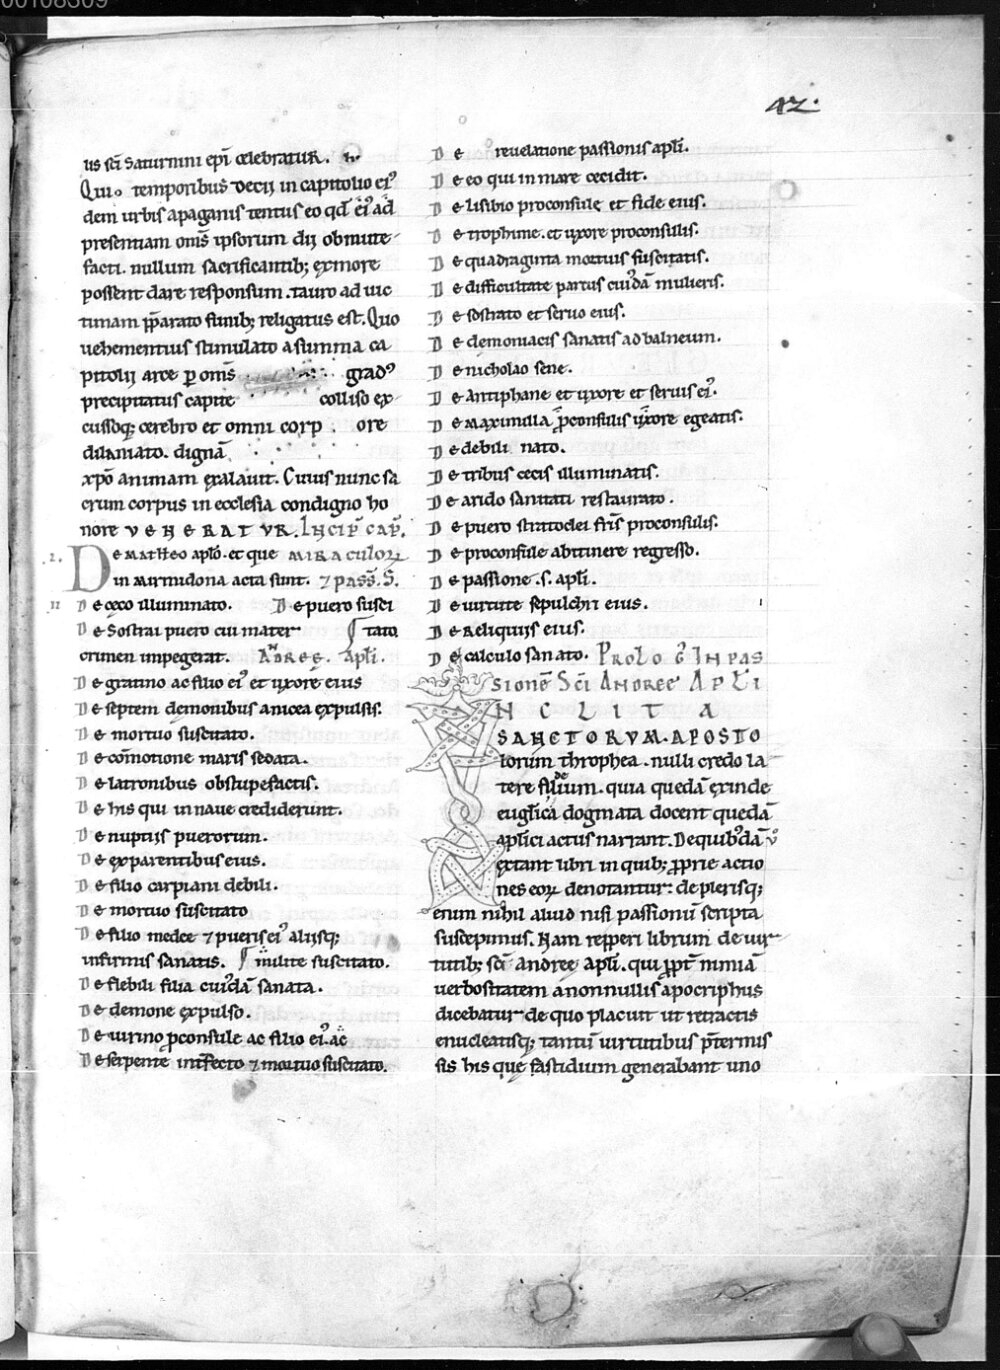 00108309
42.
us sci saturnini epi celebratur. h.
Qui. temporibus decii in capitolio ei'
dem urbis a paganis tentus eo qd ei' ad
presentiam oms ipsorum dii obmute
facti. nullum sacrificantib; ex more
possent dare responsum. tauro ad uic
timam pparato funib; religatus est. Quo
uehementius stimulato a summa ca
pitolii arce p oms grad'
precipitatus capite colliso ex
cussoq; cerebro et omni corp ore
dilaniato. dignā
xpo animam exalauit. Cuius nunc sa
crum corpus in ecclesia condigno ho
nore VENERATVR. Incip cap.
.I. De Matheo aplo. et que miraculor
in mirmidona acta sunt. 7 pass. S.
II De ceco illuminato. De puero susci
De Sostrai puero cui mater tato
crimen impegerat. Andree. Apli.
De gratino ac filio ei' et uxore eius
De septem demonibus a nicea expulsis.
De mortuo suscitato.
De cōmotione maris sedata.
De latronibus obstupefactis.
De his qui in naue crediderunt.
De nuptiis puerorum.
De exparentibus eius.
De filio carpiani debili.
De mortuo suscitato
De filio medee 7 pueris ei' aliisq;
infirmis sanatis. milite suscitato.
De flebili filia cui'dā sanata.
De demone expulso.
De uirino pconsule ac filio ei'. ac
De serpente interfecto 7 mortuo suscitato.
De reuelatione passionis apli.
De eo qui in mare cecidit.
De lisibio proconsule et fide eius.
De trophime. et uxore proconsulis.
De quadraginta mortuis suscitatis.
De difficultate partus cui'dā mulieris.
De sostrato et seruo eius.
De demoniacis sanatis ad balneum.
De nicholao sene.
De antiphane et uxore et seruis ei'.
De maximilla pconsulis uxore egeatis.
De debili nato.
De tribus cecis illuminatis.
De arido sanitati restaurato.
De puero stratoclei fris proconsulis.
De proconsule abitinere regresso.
De passione. s. apli.
De uirtute sepulchri eius.
De reliquiis eius.
De calculo sanato. Prolog' in pas
sionē Sci Andree Apli
INCLITA
SANCTORVM. APOSTO
lorum throphea. nulli credo la
tere fidelium. quia quedā exinde
euglica dogmata docent quedā
aplici actus narrant. De quib'dā u'
extant libri in quib; pprie actio
nes eor denotantur: de plerisq;
enim nihil aliud nisi passionū scripta
suscepimus. Nam repperi librum de uir
tutib; sci andree apli. qui ppt nimiā
uerbositatem a nonnullis apocriphus
dicebatur de quo placuit ut retractis
enucleatisq; tantū uirtutibus ptermis
sis his que fastidium generabant uno